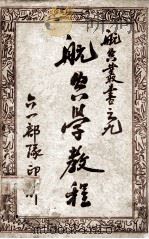 航空叢書之九
航空學教程
六一部隊印刊